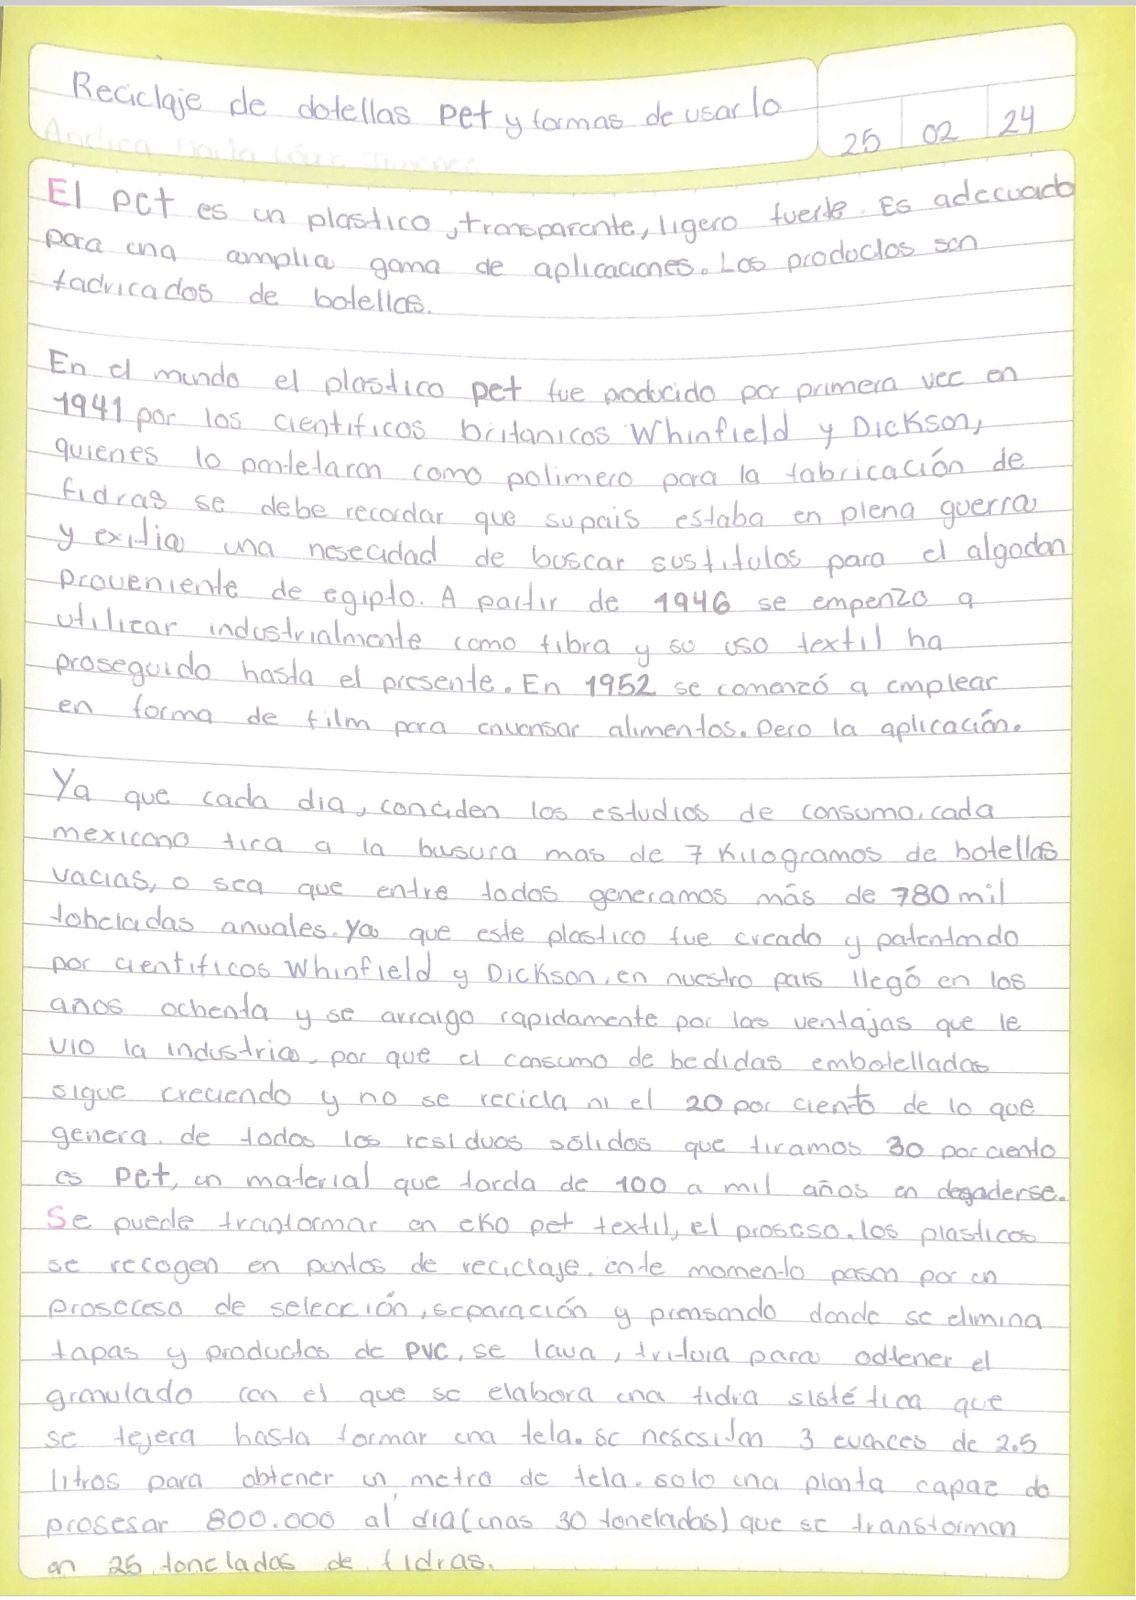 Reciclaje de dotellas pet y formas de usarlo
25 02 24
El pet es un plastico, transparente, ligero fuerte. Es adecuado
para una amplia gama de aplicaciones. Los productos son
fadricados de botellas.
En el mundo el plastico pet fue producido por primera vec en
1941 por los cientificos britanicos Whinfield y Dickson,
quienes lo como polimero para la fabricación de
fidras se debe recordar que su pais estaba en plena guerra
y exitia una nesecidad de buscar sustitutos para el algodon
proveniente de egipto. A partir de 1946 se empenzo a
utilizar industrialmente como fibra y su uso textil ha
proseguido hasta el presente. En 1952 se comenzó a emplear
en forma de film para envansar alimentos. Pero la aplicación.
Ya que cada dia, conciden los estudios de consumo, cada
mexicano tira a la busura mas de 7 Kilogramos de botellas
vacias, o sea que entre todos generamos más de 780 mil
toneladas anuales. Ya que este plastico fue creado y patentando
por cientificos Whinfield y Dickson, en nuestro pais llegó en los
años ochenta y se arraigo rapidamente por las ventajas que le
vio la industria, por que el consumo de bedidas embotelladas
sigue creciendo y no se recicla ni el 20 por ciento de lo que
genera. de todos los residuos sólidos que tiramos 30 por ciento
es pet, un material que tarda de 100 a mil años en degaderse.
Se puede tranformar en eko pet textil, el proseso. los plasticos
se recogen en puntos de reciclaje. ente momento pasan por un
proseceso de selección, separación y prensando donde se elimina
tapas y productos de PVC, se lava, tritura para odtener el
granulado con el que se elabora una fidra sistética que
se tejera hasta formar una tela. se nesesitan 3 evances de 2.5
litros para obtener un metro de tela. solo una planta capaz de
prosesar 800.000 al dia (unas 30 toneladas) que se transforman
en 25 toneladas de fidras.